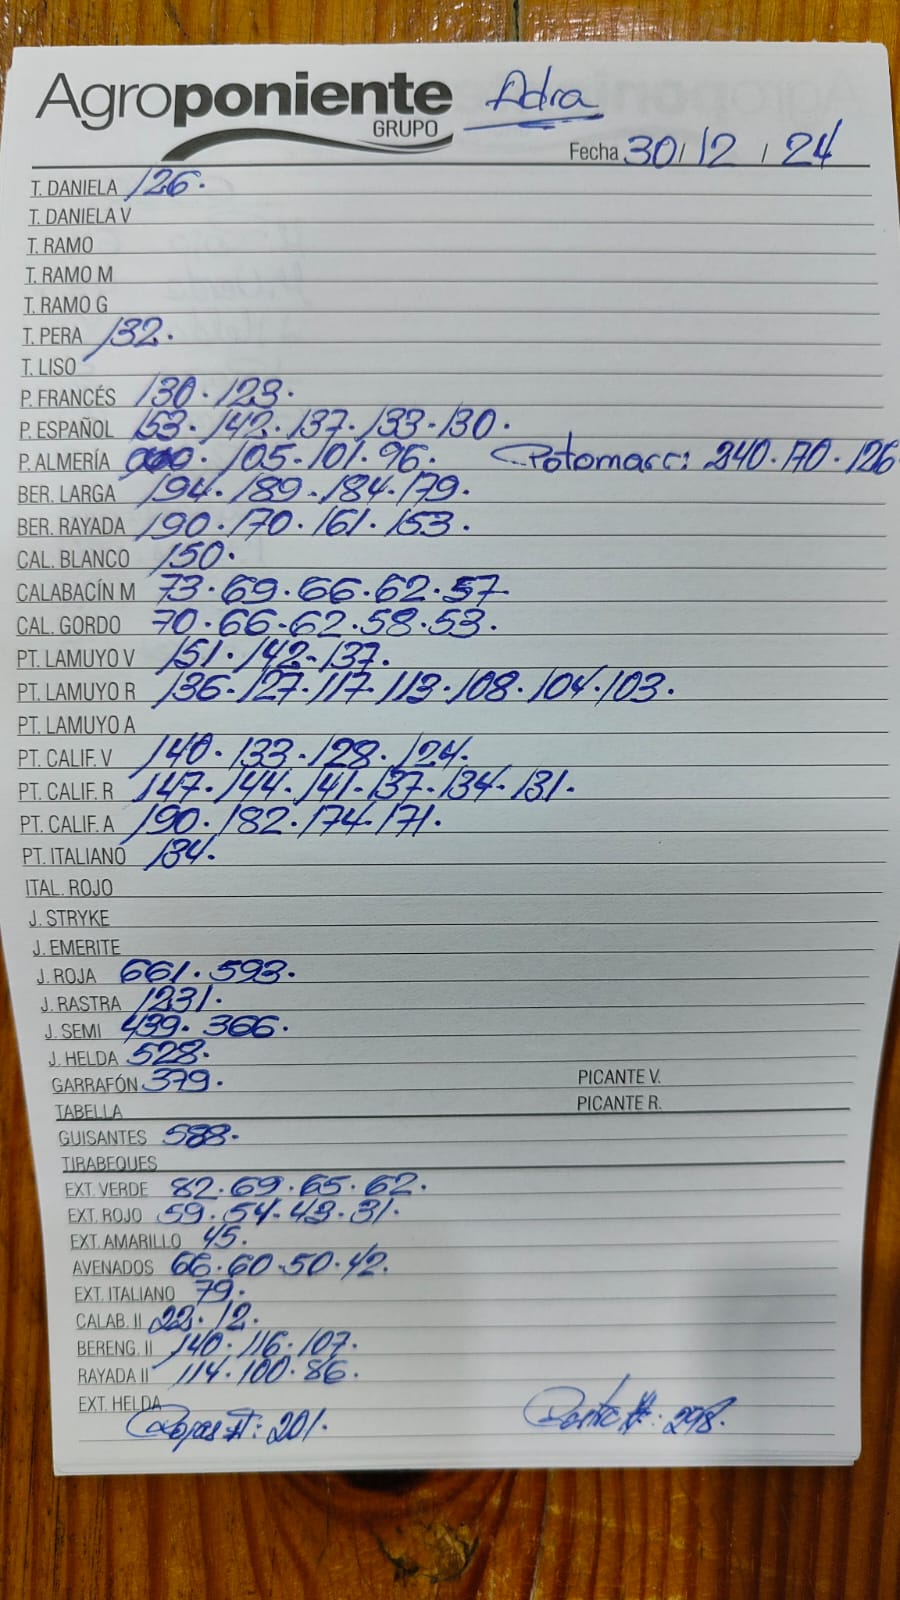 Agroponiente
GRUPO
Adra
Fecha 30/12/24
T. DANIELA 126.
T. DANIELA V
T. RAMO
T. RAMO M
T. RAMO G
T. PERA 132.
T. LISO
P. FRANCÉS 130. 123.
P. ESPAÑOL 153. 142. 137. 133. 130.
P. ALMERÍA 105. 101. 96. Potomarc: 240. 170. 126
BER. LARGA 194. 189. 184. 179.
BER. RAYADA 190. 170. 161. 153.
CAL. BLANCO 150.
CALABACÍN M 73. 69. 66. 62. 57
CAL. GORDO 70. 66. 62. 58. 53.
PT. LAMUYO V 151. 142. 137.
PT. LAMUYO R 136. 127. 117. 113. 108. 104. 103.
PT. LAMUYO A
PT. CALIF. V 140. 133. 128. 124.
PT. CALIF. R 147. 144. 141. 137. 134. 131.
PT. CALIF. A 190. 182. 174. 171.
PT. ITALIANO 134.
ITAL. ROJO
J. STRYKE
J. EMERITE
J. ROJA 661. 593.
J. RASTRA 1231.
J. SEMI 439. 366.
J. HELDA 528.
GARRAFÓN 379. PICANTE V.
TABELLA PICANTE R.
GUISANTES 588.
TIRABEQUES
EXT. VERDE 82. 69. 65. 62.
EXT. ROJO 59. 54. 43. 31.
EXT. AMARILLO 45.
AVENADOS 66. 60. 50. 42.
EXT. ITALIANO 79.
CALAB. II 22. 12.
BERENG. II 140. 116. 107.
RAYADA II 114. 100. 86.
EXT. HELDA
II: 201. 298.